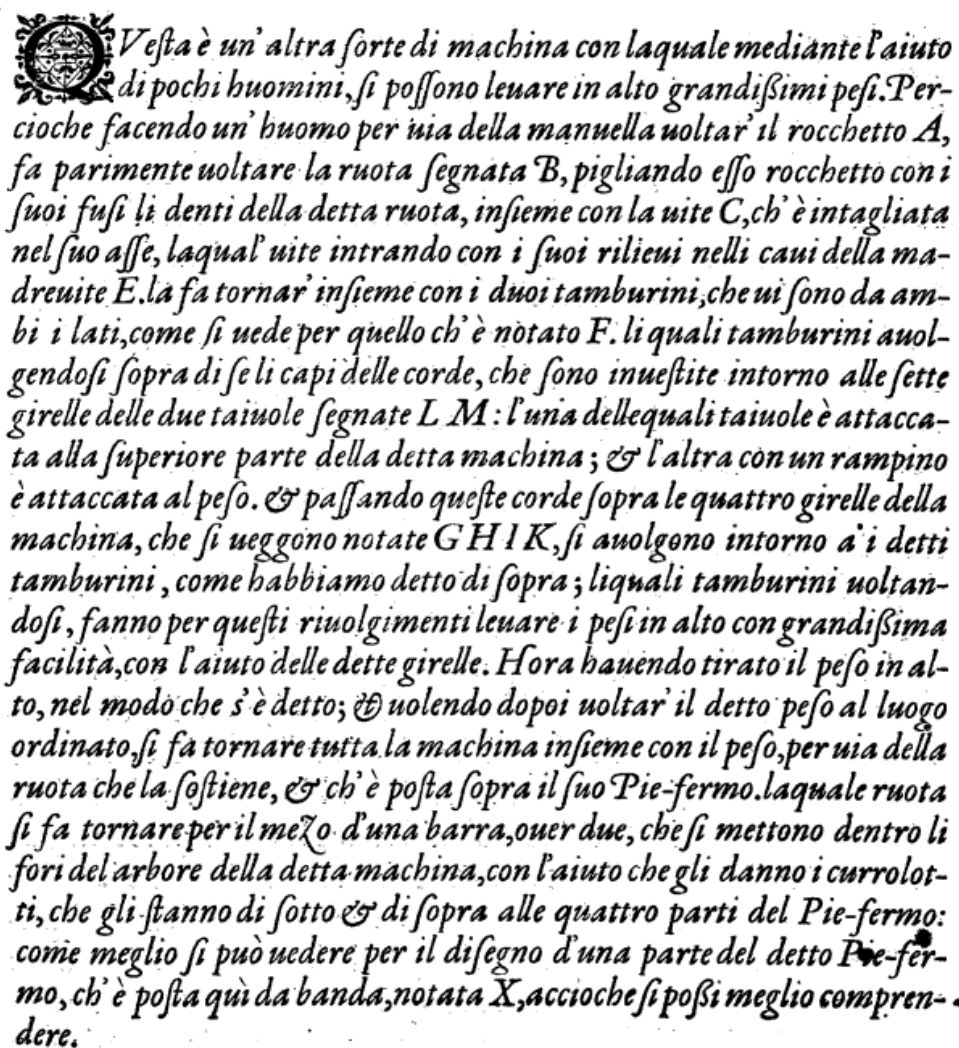 QVeſta è un' altra ſorte di machina con laquale mediante l'aiuto
di pochi huomini, ſi poſſono leuare in alto grandißimi peſi. Per-
cioche facendo un' huomo per uia della manuella uoltar' il rocchetto A,
fa parimente uoltare la ruota ſegnata B, pigliando eſſo rocchetto con i
ſuoi fuſi li denti della detta ruota, inſieme con la uite C, ch' è intagliata
nel ſuo aſſe, laqual' uite intrando con i ſuoi rilieui nelli caui della ma-
dreuite E. la fa tornar' inſieme con i duoi tamburini, che ui ſono da am-
bi i lati, come ſi uede per quello ch' è notato F. li quali tamburini auol-
gendoſi ſopra di ſe li capi delle corde, che ſono inueſtite intorno alle ſette
girelle delle due taiuole ſegnate L M: l'una dellequali taiuole è attacca-
ta alla ſuperiore parte della detta machina; & l'altra con un rampino
è attaccata al peſo. & paſſando queſte corde ſopra le quattro girelle della
machina, che ſi ueggono notate G H I K, ſi auolgono intorno a' i detti
tamburini, come habbiamo detto di ſopra; liquali tamburini uoltan-
doſi, fanno per queſti riuolgimenti leuare i peſi in alto con grandißima
facilità, con l'aiuto delle dette girelle. Hora hauendo tirato il peſo in al-
to, nel modo che s'è detto; & uolendo dopoi uoltar' il detto peſo al luogo
ordinato, ſi fa tornare tutta la machina inſieme con il peſo, per uia della
ruota che la ſoſtiene, & ch' è poſta ſopra il ſuo Pie-fermo. laquale ruota
ſi fa tornare per il mezo d'una barra, ouer due, che ſi mettono dentro li
fori del arbore della detta machina, con l'aiuto che gli danno i currolot-
ti, che gli ſtanno di ſotto & di ſopra alle quattro parti del Pie-fermo:
come meglio ſi può uedere per il diſegno d'una parte del detto Pie-fer-
mo, ch' è poſta quì da banda, notata X, accioche ſi poßi meglio compren-
dere.